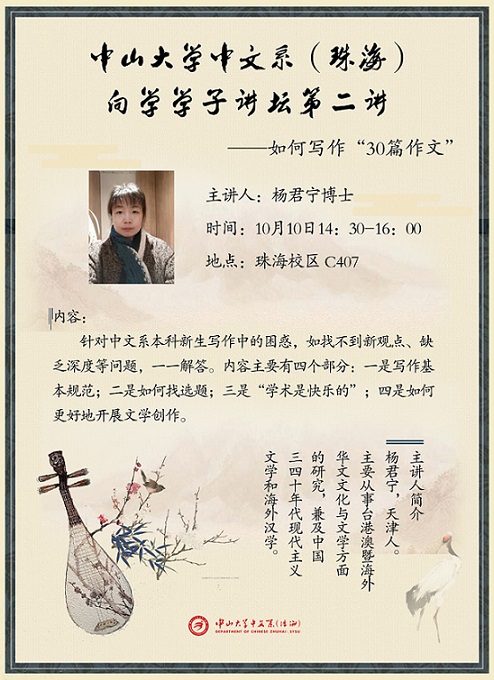 中山大学中文系（珠海）
向学学子讲坛第二讲
——如何写作“30篇作文”
主讲人：杨君宁博士
时间：10月10日14：30-16：00
地点：珠海校区 C407
内容：
针对中文系本科新生写作中的困惑，如找不到新观点、缺
乏深度等问题，一一解答。内容主要有四个部分：一是写作基
本规范；二是如何找选题；三是“学术是快乐的”；四是如何
更好地开展文学创作。
主讲人简介
杨君宁，天津人。
主要从事台港澳暨海外
华文文化与文学方面
的研究，兼及中国
三四十年代现代主义
文学和海外汉学。
中山大学中文系(珠海)
DEPARTMENT OF CHINESE ZHUHAI, SYSU